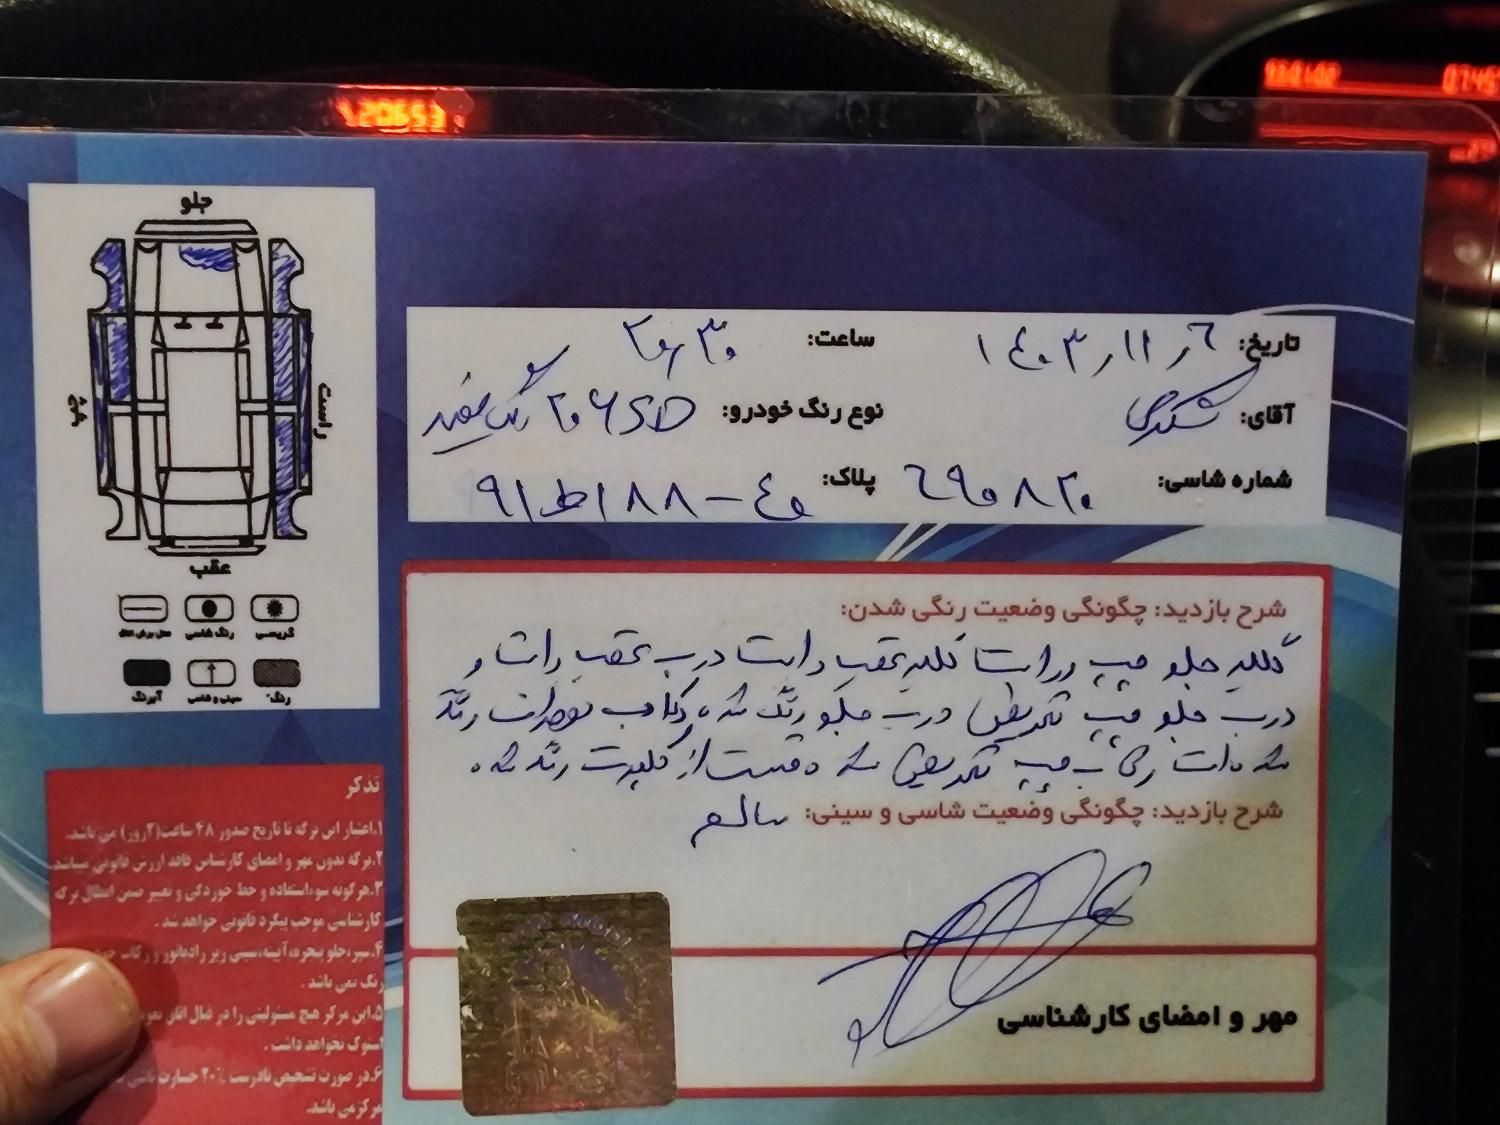 جلو
چپ
راست
عقب
گریسی
رنگ شاسی
رنگ
سینی و شاسی
آبرنگ
تاریخ: ۱۴۰۳/۱۱/۶
ساعت: ۲۰/۳۰
آقای:
نوع رنگ خودرو: ۲۰۶SD رنگ سفید
شماره شاسی: ۶۹۰۸۲۰
پلاک: ۹۱ط۱۸۸-۴۰
شرح بازدید: چگونگی وضعیت رنگی شدن:
گلگیر جلو چپ و راست گلگیر عقب راست درب عقب راست و
درب جلو چپ تعویض درب جلو رنگ شده رکاب راست رنگ
شده است رکاب چپ تعویض شده قسمت از کاپوت رنگ شده
شرح بازدید: چگونگی وضعیت شاسی و سینی: سالم
مهر و امضای کارشناسی
تذکر
۱.اعتبار این برگه تا تاریخ صدور ۴۸ ساعت(۲روز) می باشد.
۲.برگه بدون مهر و امضای کارشناس فاقد ارزش قانونی میباشد
۳.هرگونه سوءاستفاده و خط خوردگی و تغییر ضمن ابطال برگه
کارشناسی موجب پیگرد قانونی خواهد شد.
۴.سپرجلو پنجره،آیینه،سینی زیر رادیاتور و رکاب
رنگ نمی باشد.
۵.این مرکز هیچ مسئولیتی را در قبال اتاق
استوک نخواهد داشت.
۶.در صورت تشخیص نادرست ۲۰٪ خسارت
مرکز می باشد.